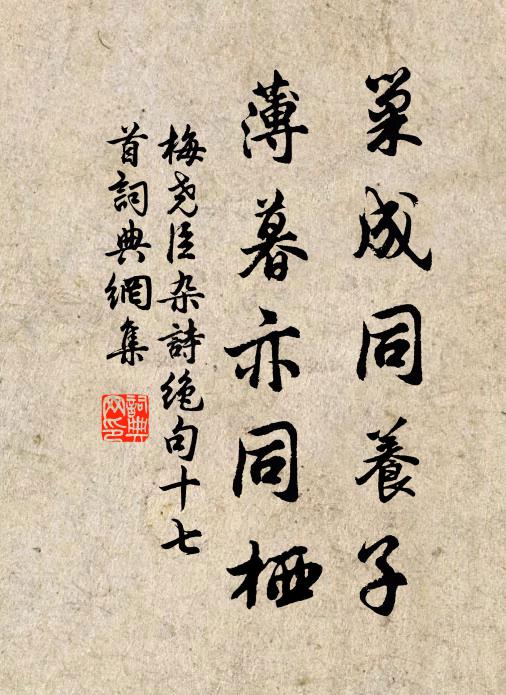 巢成同養子
薄暮亦同栖
梅堯臣杂詩絶句十七
首詞典網集
詞典
网印